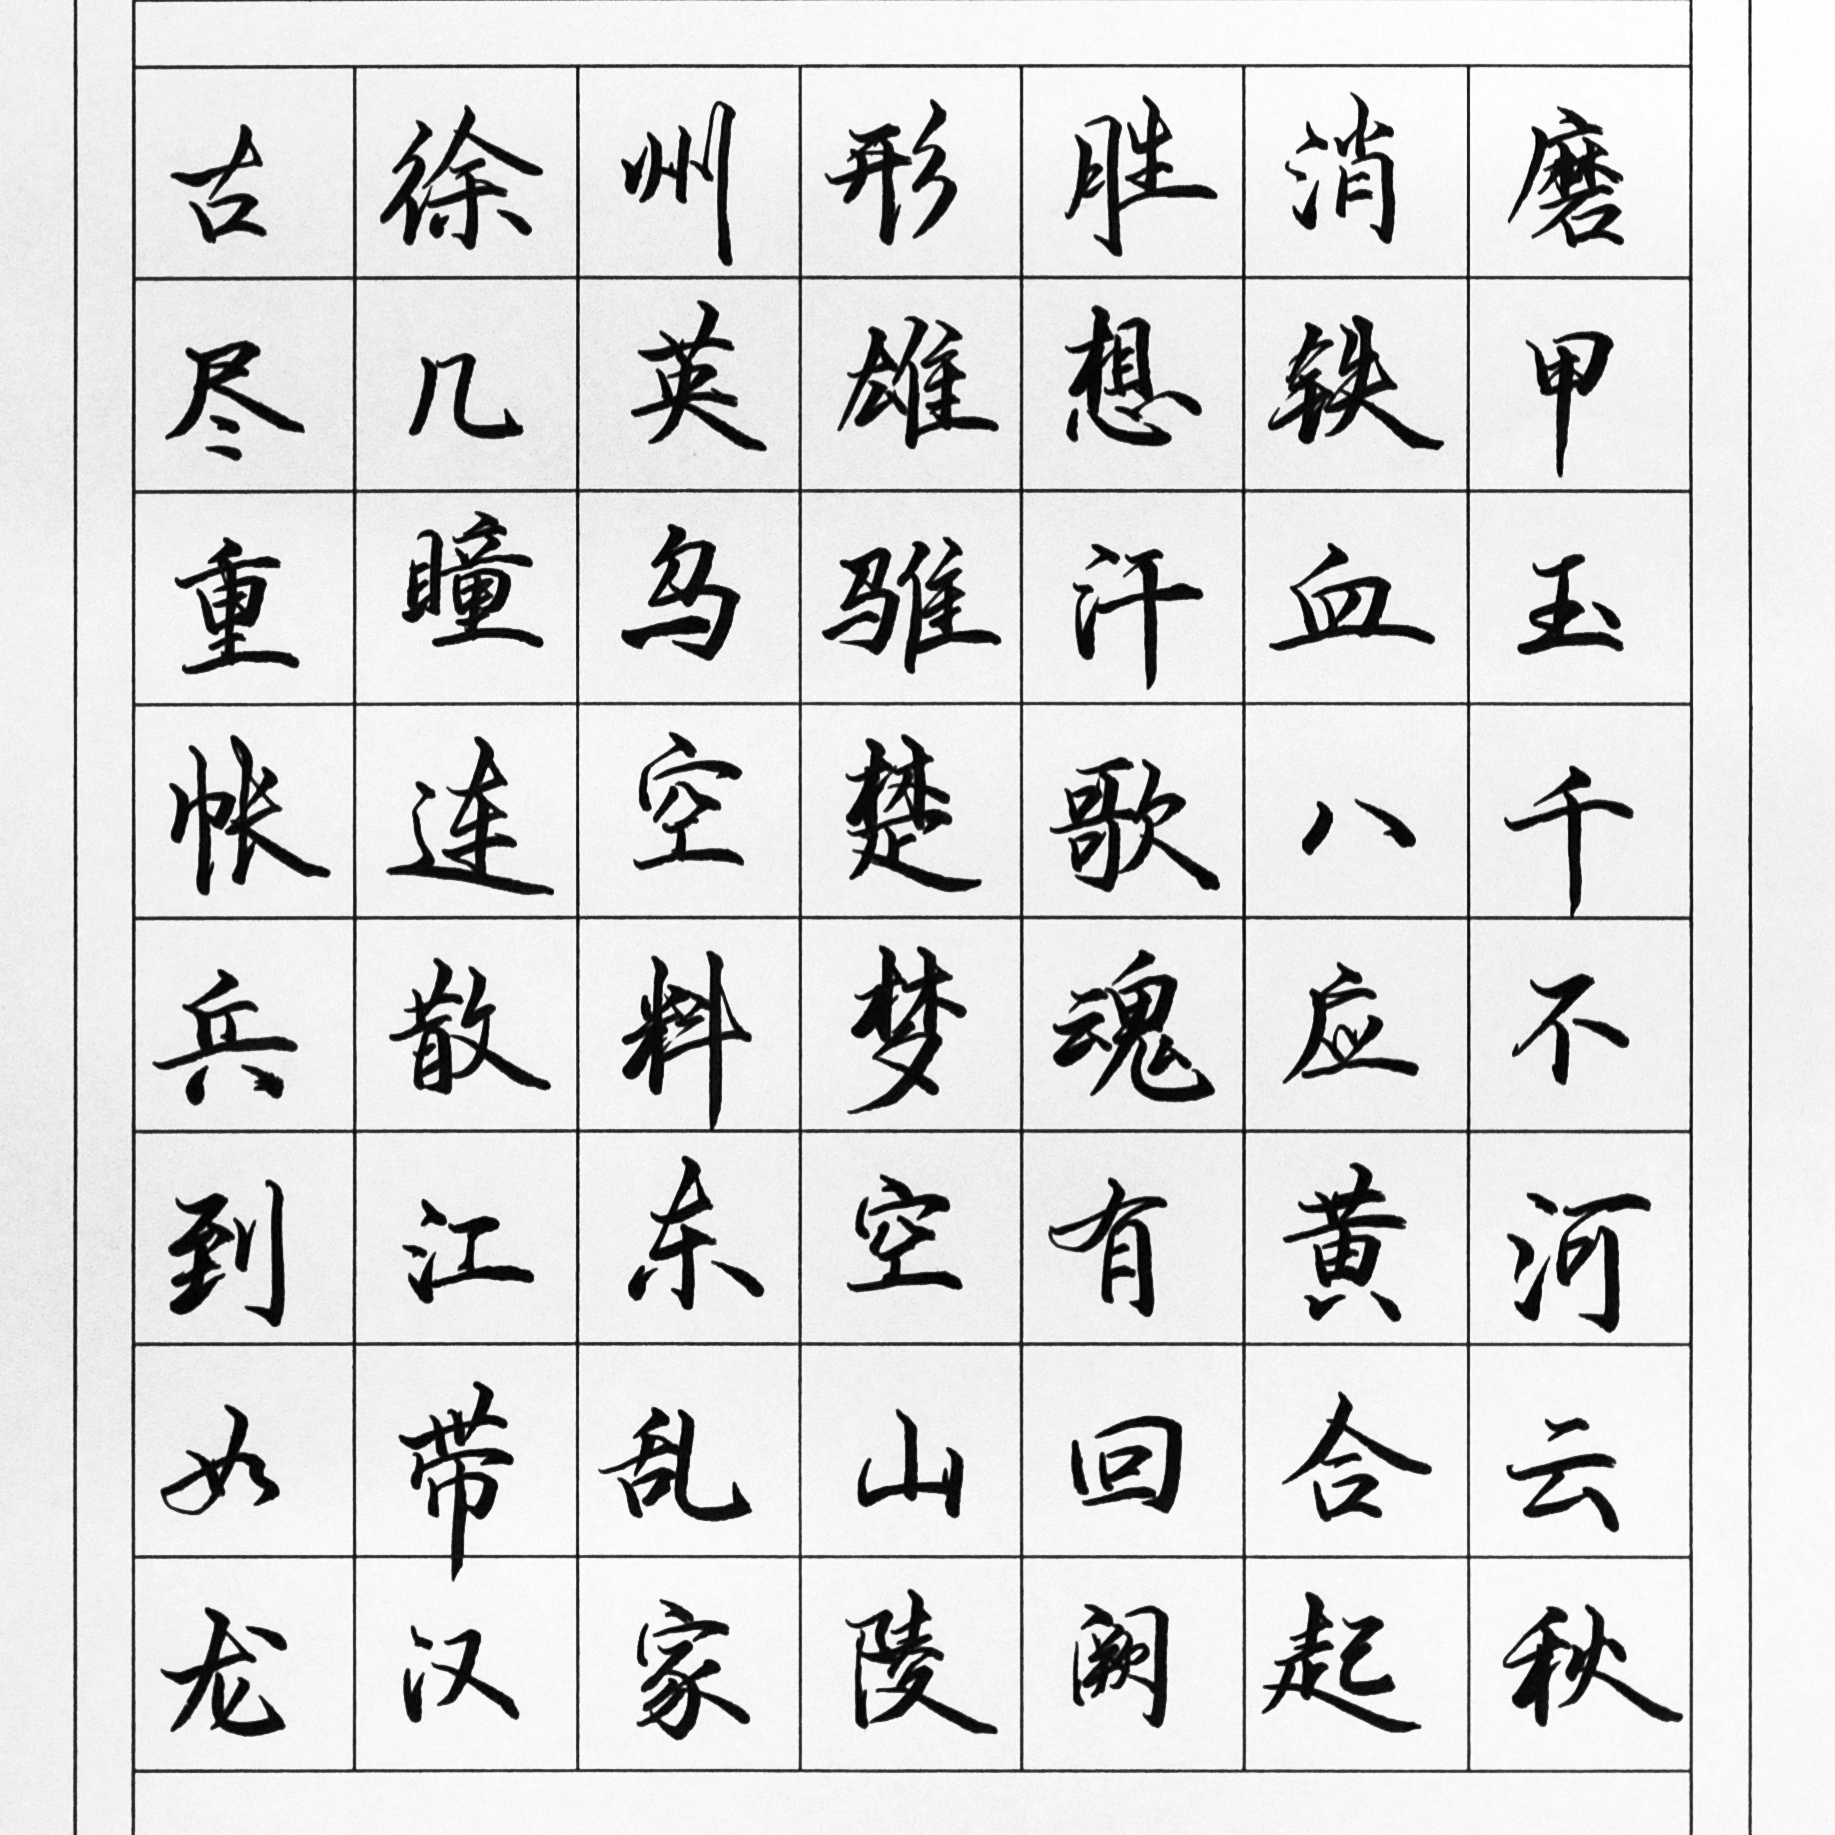 古徐州形胜消磨
尽几英雄想铁甲
重瞳乌骓汗血玉
帐连空楚歌八千
兵散料梦魂应不
到江东空有黄河
如带乱山回合云
龙汉家陵阙起秋